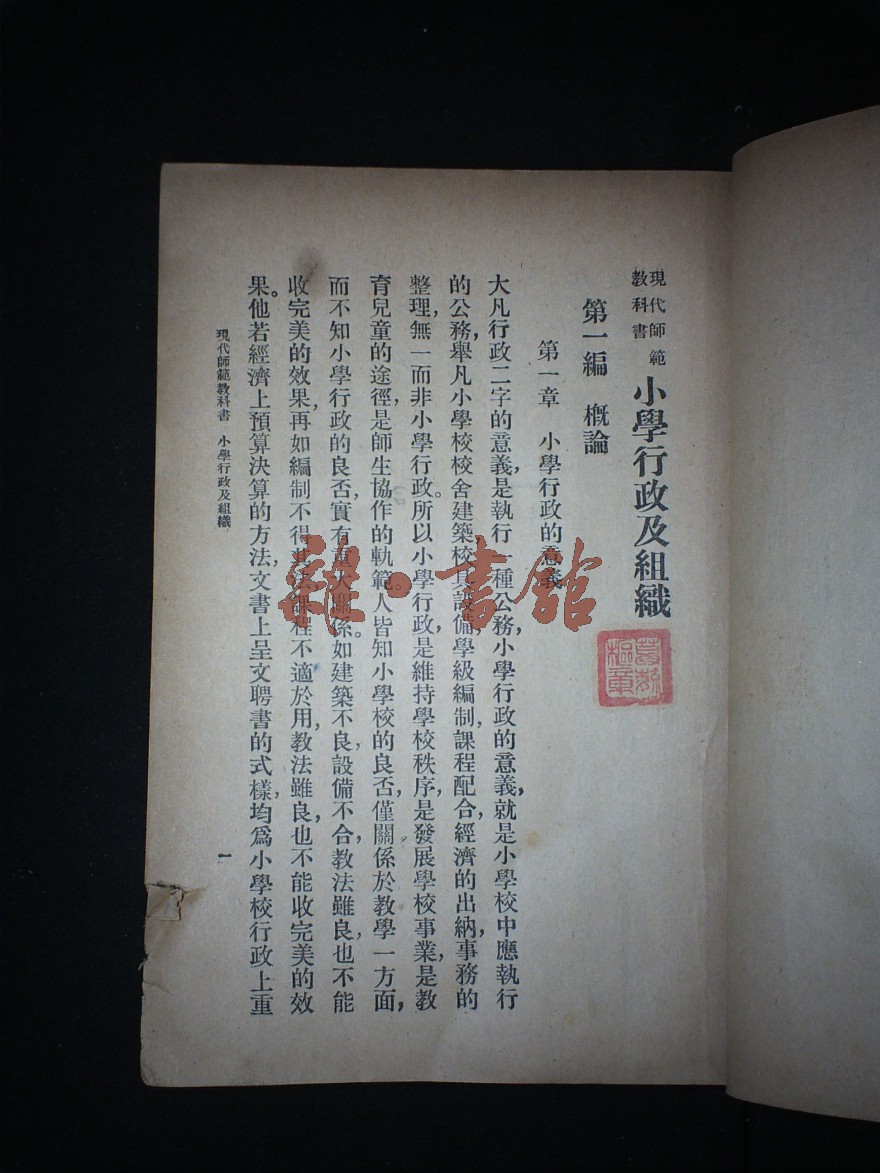 現代師範
教科書
小學行政及組織
第一編 概論
第一章 小學行政的意義
大凡行政二字的意義,是執行一種公務,小學行政的意義,就是小學校中應執行
的公務,舉凡小學校校舍建築,校具設備,學級編制,課程配合,經濟的出納,事務的
整理,無一而非小學行政。所以小學行政,是維持學校秩序,是發展學校事業,是教
育兒童的途徑,是師生協作的軌範。人皆知小學校的良否,僅關係於教學一方面,
而不知小學行政的良否,實有重大關係。如建築不良,設備不合,教法雖良,也不能
收完美的效果,再如編制不得其法,課程不適於用,教法雖良,也不能收完美的效
果。他若經濟上預算決算的方法,文書上呈文聘書的式樣,均爲小學校行政上重
現代師範教科書 小學行政及組織
一
雜·書館